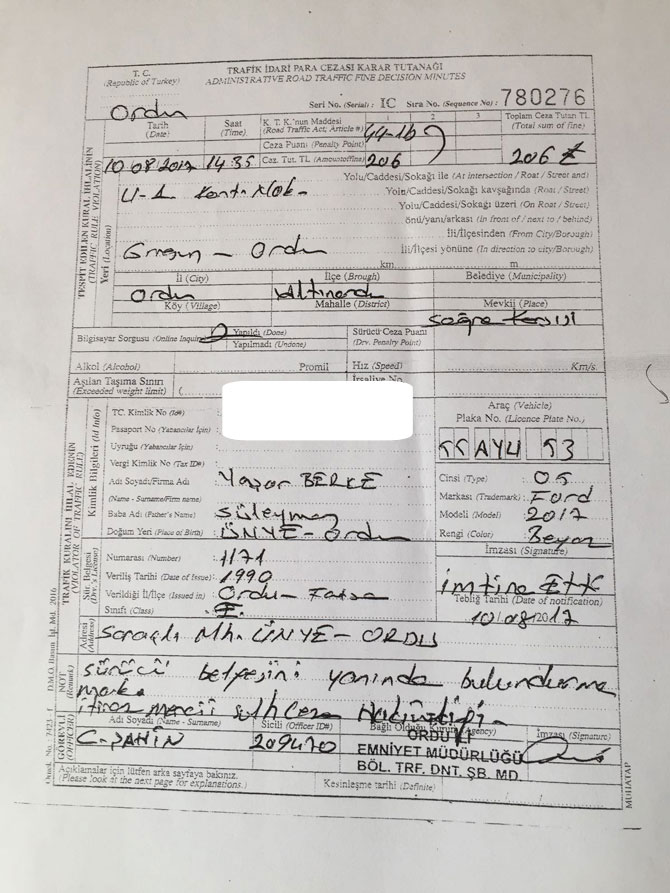 T. C.
(Republic of Turkey)
TRAFİK İDARİ PARA CEZASI KARAR TUTANAĞI
ADMINISTRATIVE ROAD TRAFFIC FINE DECISION MINUTES
Seri No. (Serial): IC Sıra No. (Sequence No): 780276
Ordu
Tarih
(Date)
Saat
(Time)
K. T. K.'nun Maddesi
(Road Traffic Act; Article #)
1 2 3
44-1b
Toplam Ceza Tutarı TL
(Total sum of fine)
Ceza Puanı (Penalty Point)
10 08 2017 14 35 Caz. Tut. TL (Amountoffine) 206 206 ₺
TESPİT EDİLEN KURAL İHLALİNİN
(TRAFFIC RULE VIOLATION)
Yeri (Location)
Yolu/Caddesi/Sokağı ile (At intersection / Roat / Street and)
Yolu/Caddesi/Sokağı kavşağında (Roat / Street)
Yolu/Caddesi/Sokağı üzeri (On Roat / Street)
önü/yanı/arkası (In front of / next to / behind)
İli/İlçesinden (From City/Borough)
Giresun - Ordu İli/İlçesi yönüne (In direction to city/Borough)
km m
İl (City) İlçe (Brough) Belediye (Municipality)
Ordu Altınordu
Köy (Village) Mahalle (District) Mevkii (Place)
Bilgisayar Sorgusu (Online Inquiry) Yapıldı (Done)
Yapılmadı (Undone)
Sürücü Ceza Puanı
(Drv. Penalty Point)
Alkol (Alcohol) Promil Hız (Speed) Km/s.
Aşılan Taşıma Sınırı
(Exceeded weight limit) İrsaliye No
TRAFİK KURALINI İHLAL EDENİN
(VIOLATOR OF TRAFFIC RULE)
Kimlik Bilgileri (Id Info)
TC. Kimlik No (Id#) :
Pasaport No (Yabancılar İçin) :
Uyruğu (Yabancılar İçin) :
Vergi Kimlik No (Tax ID#) :
Adı Soyadı/Firma Adı : Yaşar BERKE
(Name - Surname/Firm name)
Baba Adı (Father's Name) : Süleyman
Doğum Yeri (Place of Birth) : ÜNYE - Ordu
Araç (Vehicle)
Plaka No. (Licence Plate No.)
Cinsi (Type) : 05
Markası (Trademark) : Ford
Modeli (Model) : 2017
Rengi (Color) : Beyaz
İmzası (Signature)
Sür. Belgesi
(Drv.'s License)
Numarası (Number) : 1171
Veriliş Tarihi (Date of Issue) : 1990
Verildiği İl/İlçe (Issued in) : Ordu - Fatsa
Sınıfı (Class) : E
imtina ETTİ
Tebliğ Tarihi (Date of notification)
10/08/2017
Adresi
(Address)
Saraçlı Mh. ÜNYE - ORDU
NOT
(Remark)
Sürücü belgesini yanında bulundurma
mak.
itiraz mercii sulh Ceza Hakimliği.
GÖREVLİ
(OFFICER)
Adı Soyadı (Name - Surname) Sicili (Officer ID#) Bağlı Olduğu Kurum (Agency) İmzası (Signature)
C. ŞAHİN 209470
ORDU İL
EMNİYET MÜDÜRLÜĞÜ
BÖL. TRF. DNT. ŞB. MD.
Açıklamalar için lütfen arka sayfaya bakınız.
(Please look at the next page for explanations.)
Kesinleşme tarihi (Definite)
MUHATAP
D.M.O. Basım İşl. Md. 2016